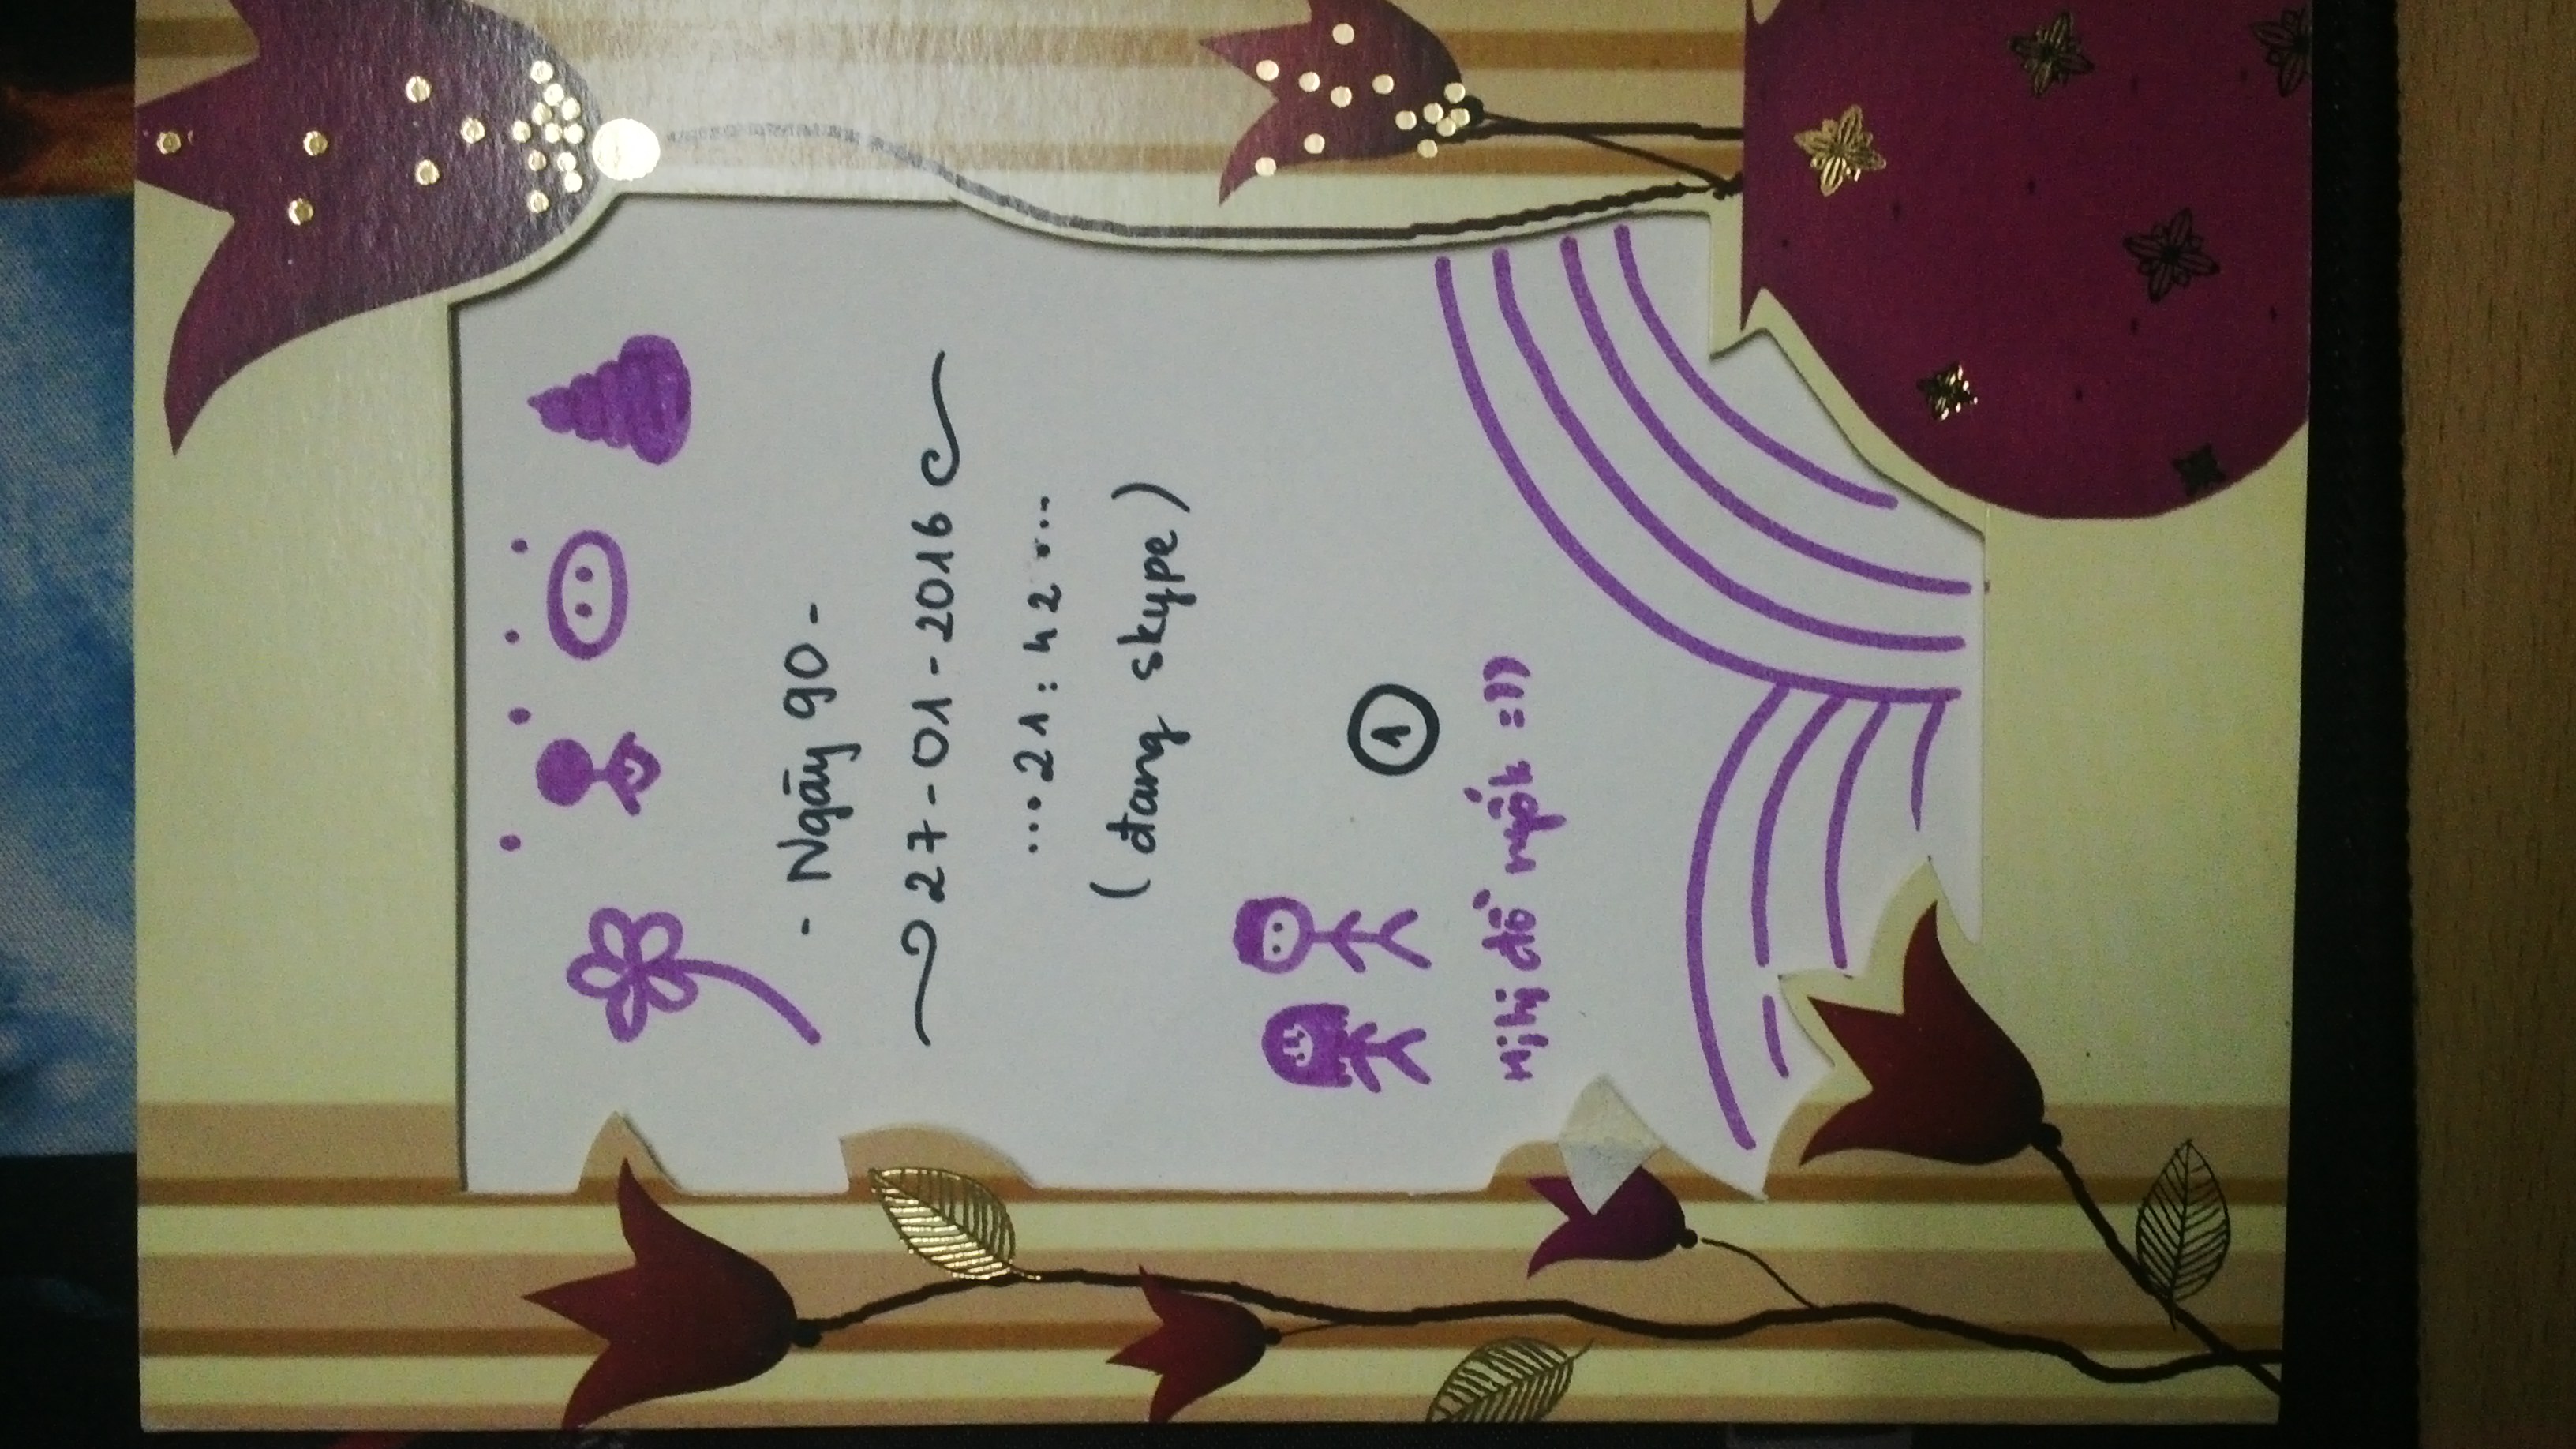 - Ngày 90 -
27-01-2016
...21:42...
(đang skype)
1
Hihi đồ ngốk =))